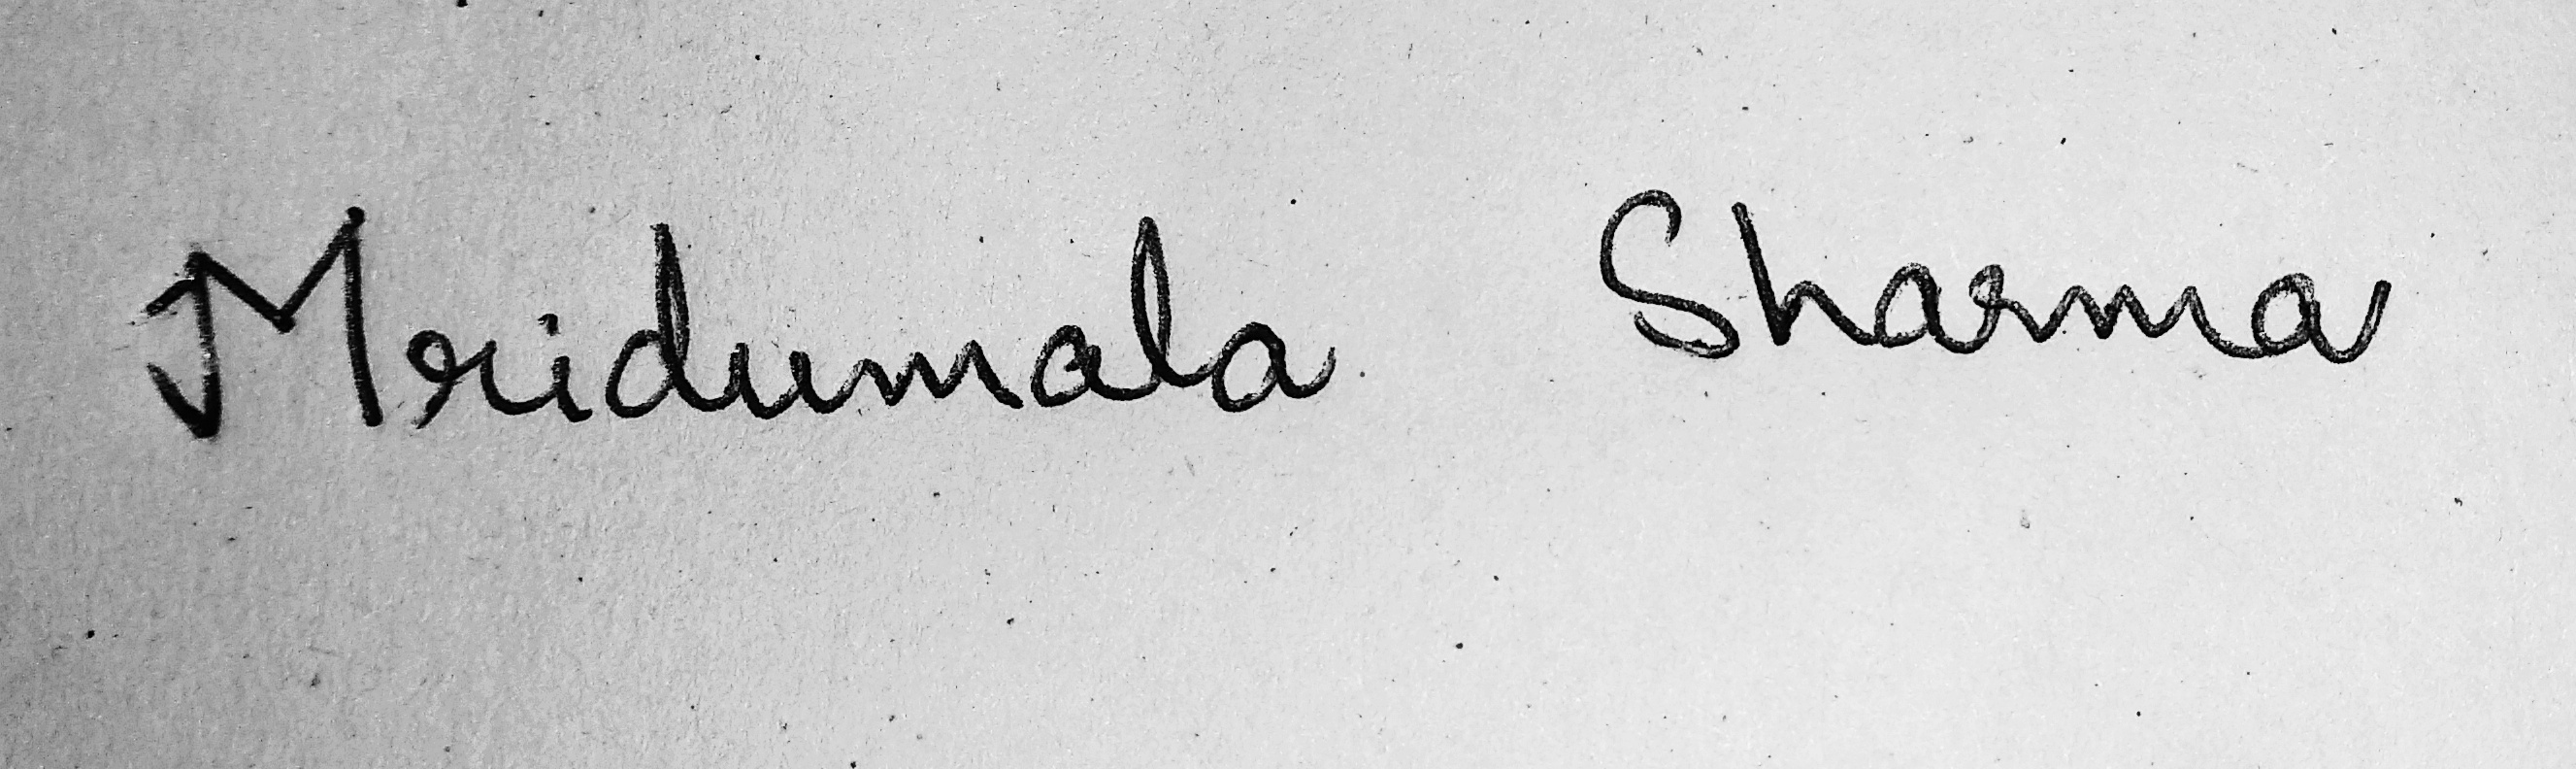 Mridumala Sharma